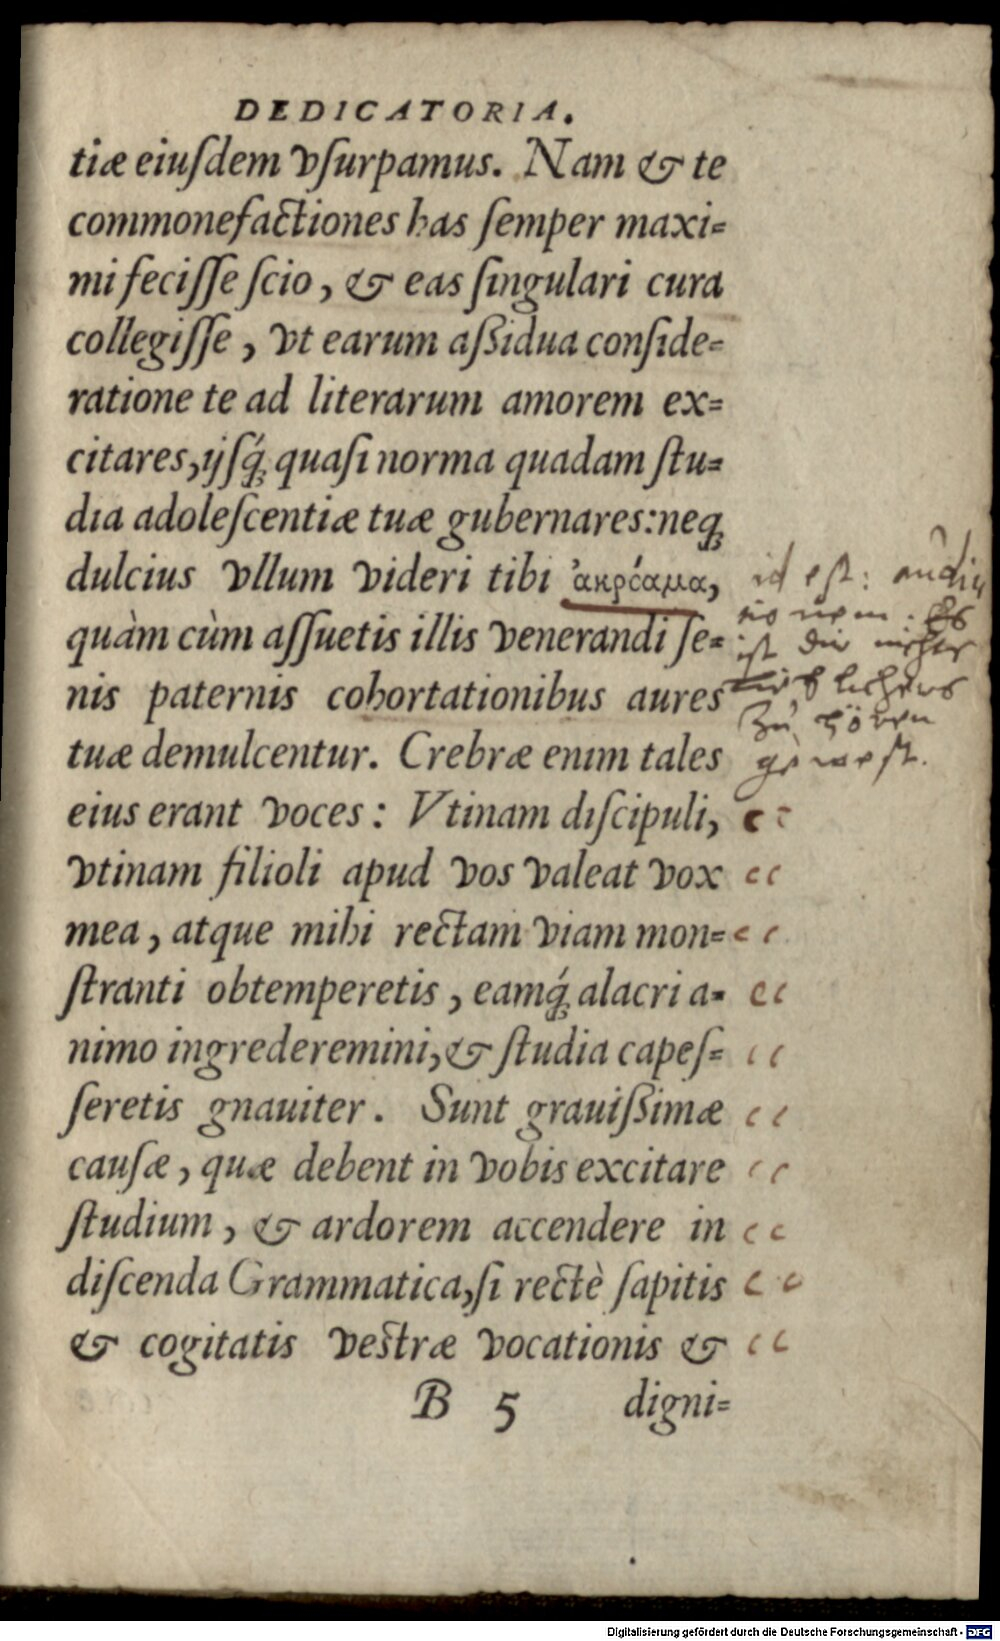 DEDICATORIA.
tiæ eiuſdem vſurpamus. Nam & te
commonefactiones has ſemper maxi-
mi feciſſe ſcio, & eas ſingulari cura
collegiſſe, vt earum aßidua conſide-
ratione te ad literarum amorem ex-
citares, ijſq́; quaſi norma quadam ſtu-
dia adoleſcentiæ tuæ gubernares: neq;
dulcius vllum videri tibi ἀκρόαμα,
quàm cùm aſſuetis illis venerandi ſe-
nis paternis cohortationibus aures
tuæ demulcentur. Crebræ enim tales
eius erant voces: Vtinam diſcipuli,
vtinam filioli apud vos valeat vox
mea, atque mihi rectam viam mon-
ſtranti obtemperetis, eamq́; alacri a-
nimo ingrederemini, & ſtudia capeſ-
ſeretis gnauiter. Sunt grauißimæ
cauſæ, quæ debent in vobis excitare
ſtudium, & ardorem accendere in
diſcenda Grammatica, ſi rectè ſapitis
& cogitatis veſtræ vocationis &
B 5 digni-
id est: audi
tionem. Es
ist dir nichts
lieblichers
zu hören
gewest.